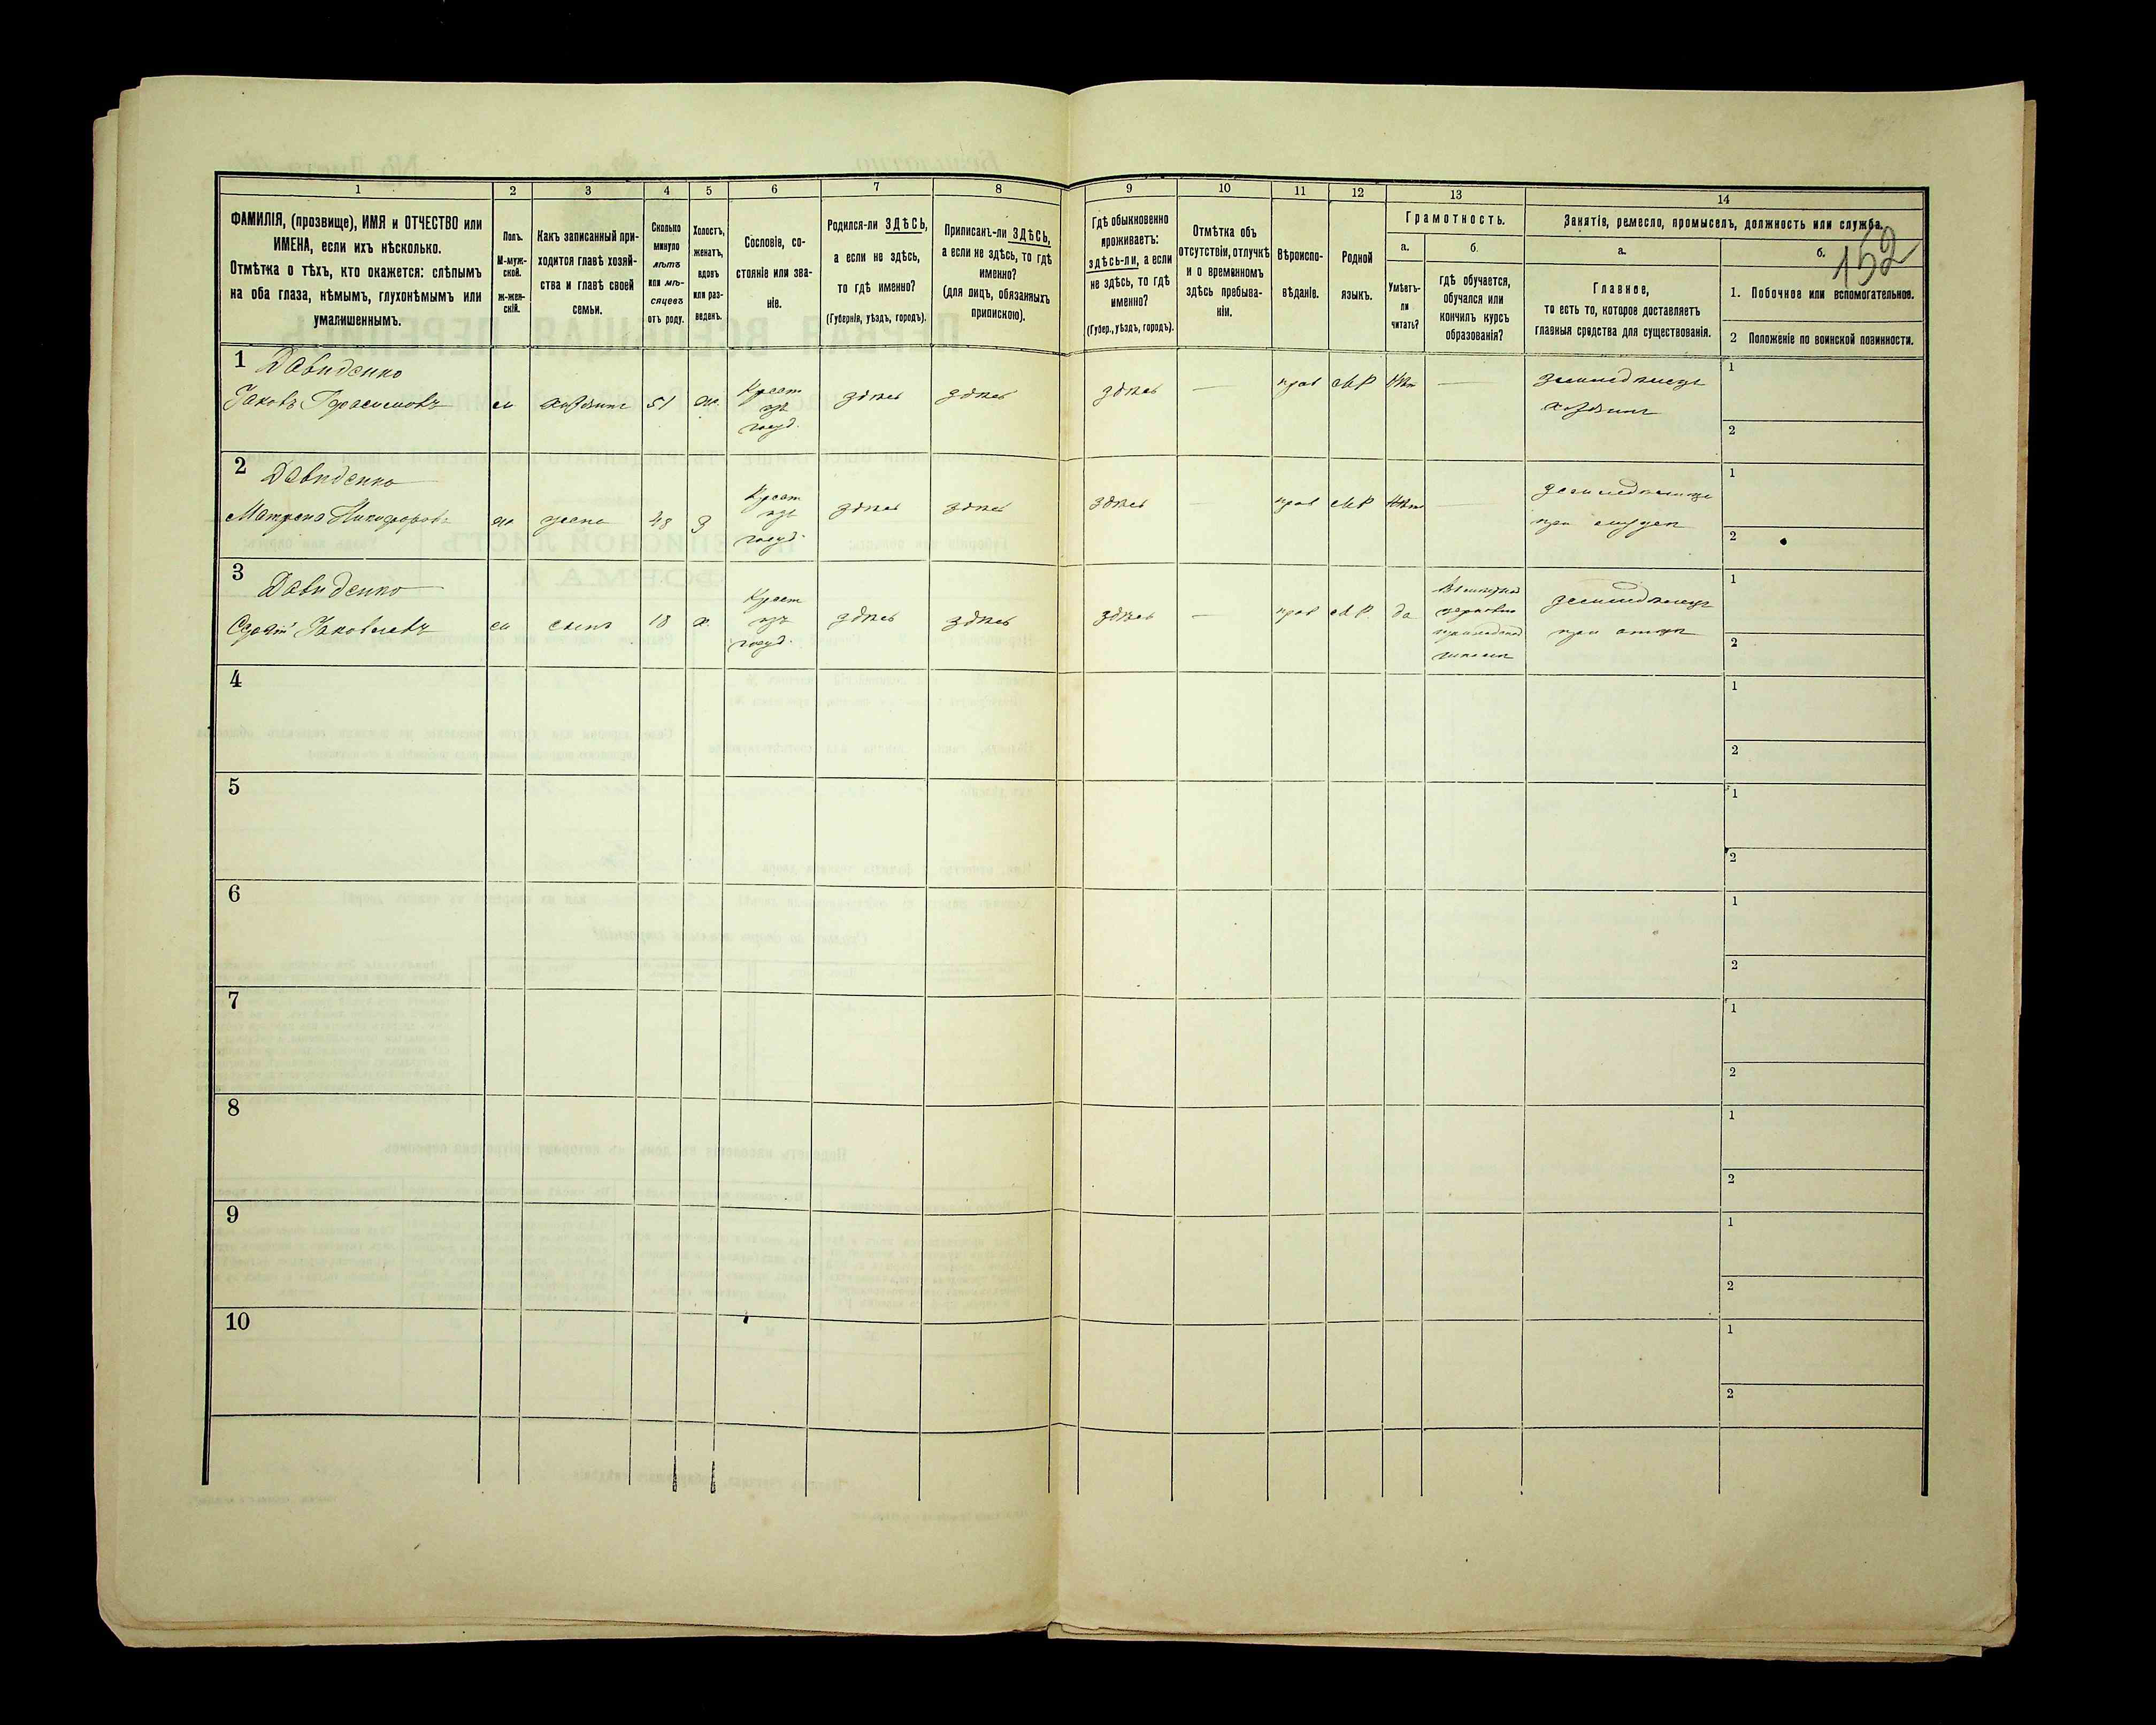 1
2
3
4
5
6
7
8
ФАМИЛІЯ, (прозвище), ИМЯ и ОТЧЕСТВО или
ИМЕНА, если ихъ нѣсколько.
Отмѣтка о тѣхъ, кто окажется: слѣпымъ
на оба глаза, нѣмымъ, глухонѣмымъ или
умалишеннымъ.
Полъ.
М-муж-
ской.
ж-жен-
скій.
Какъ записанный при-
ходится главѣ хозяй-
ства и главѣ своей
семьи.
Сколько
минуло
лѣтъ
или мѣ-
сяцевъ
отъ роду.
Холостъ,
женатъ,
вдовъ
или раз-
веденъ.
Сословіе, со-
стояніе или зва-
ніе.
Родился-ли ЗДѢСЬ,
а если не здѣсь,
то гдѣ именно?
(Губернія, уѣздъ, городъ).
Приписанъ-ли ЗДѢСЬ,
а если не здѣсь, то гдѣ
именно?
(для лицъ, обязанныхъ
припискою).
9
10
11
12
13
14
Гдѣ обыкновенно
проживаетъ:
здѣсь-ли, а если
не здѣсь, то гдѣ
именно?
(Губер., уѣздъ, городъ).
Отмѣтка объ
отсутствіи, отлучкѣ
и о временномъ
здѣсь пребыва-
ніи.
Вѣроиспо-
вѣданіе.
Родной
языкъ.
Грамотность.
а.
б.
Умѣетъ-
ли
читать?
гдѣ обучается,
обучался или
кончилъ курсъ
образованія?
Занятія, ремесло, промыселъ, должность или служба.
а.
б.
152
Главное,
то есть то, которое доставляетъ
главныя средства для существованія.
1. Побочное или вспомогательное.
2 Положеніе по воинской повинности.
1 Давиденко
Яковъ Герасимовъ
м
хозяинъ
51
ж.
Крест
изъ
госуд.
здѣсь
здѣсь
здѣсь
—
прав
М.Р
Нѣт
—
земледѣлецъ
хозяинъ
1
2
2 Давиденко
Матрена Никифоров
ж
жена
48
з
Крест
изъ
госуд.
здѣсь
здѣсь
здѣсь
—
прав
М.Р
Нѣт
—
при мужѣ
1
2
3 Давиденко
Яковлевъ
м
сынъ
18
х.
Крест
изъ
госуд.
здѣсь
здѣсь
здѣсь
—
прав
М.Р.
да
церковно
приходской
школѣ
земледѣлецъ
при отцѣ
1
2
4
1
2
5
1
2
6
1
2
7
1
2
8
1
2
9
1
2
10
1
2